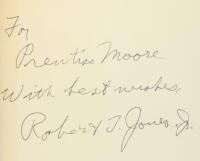 For
Prentiss Moore
With best wishes,
Robert T. Jones, Jr.